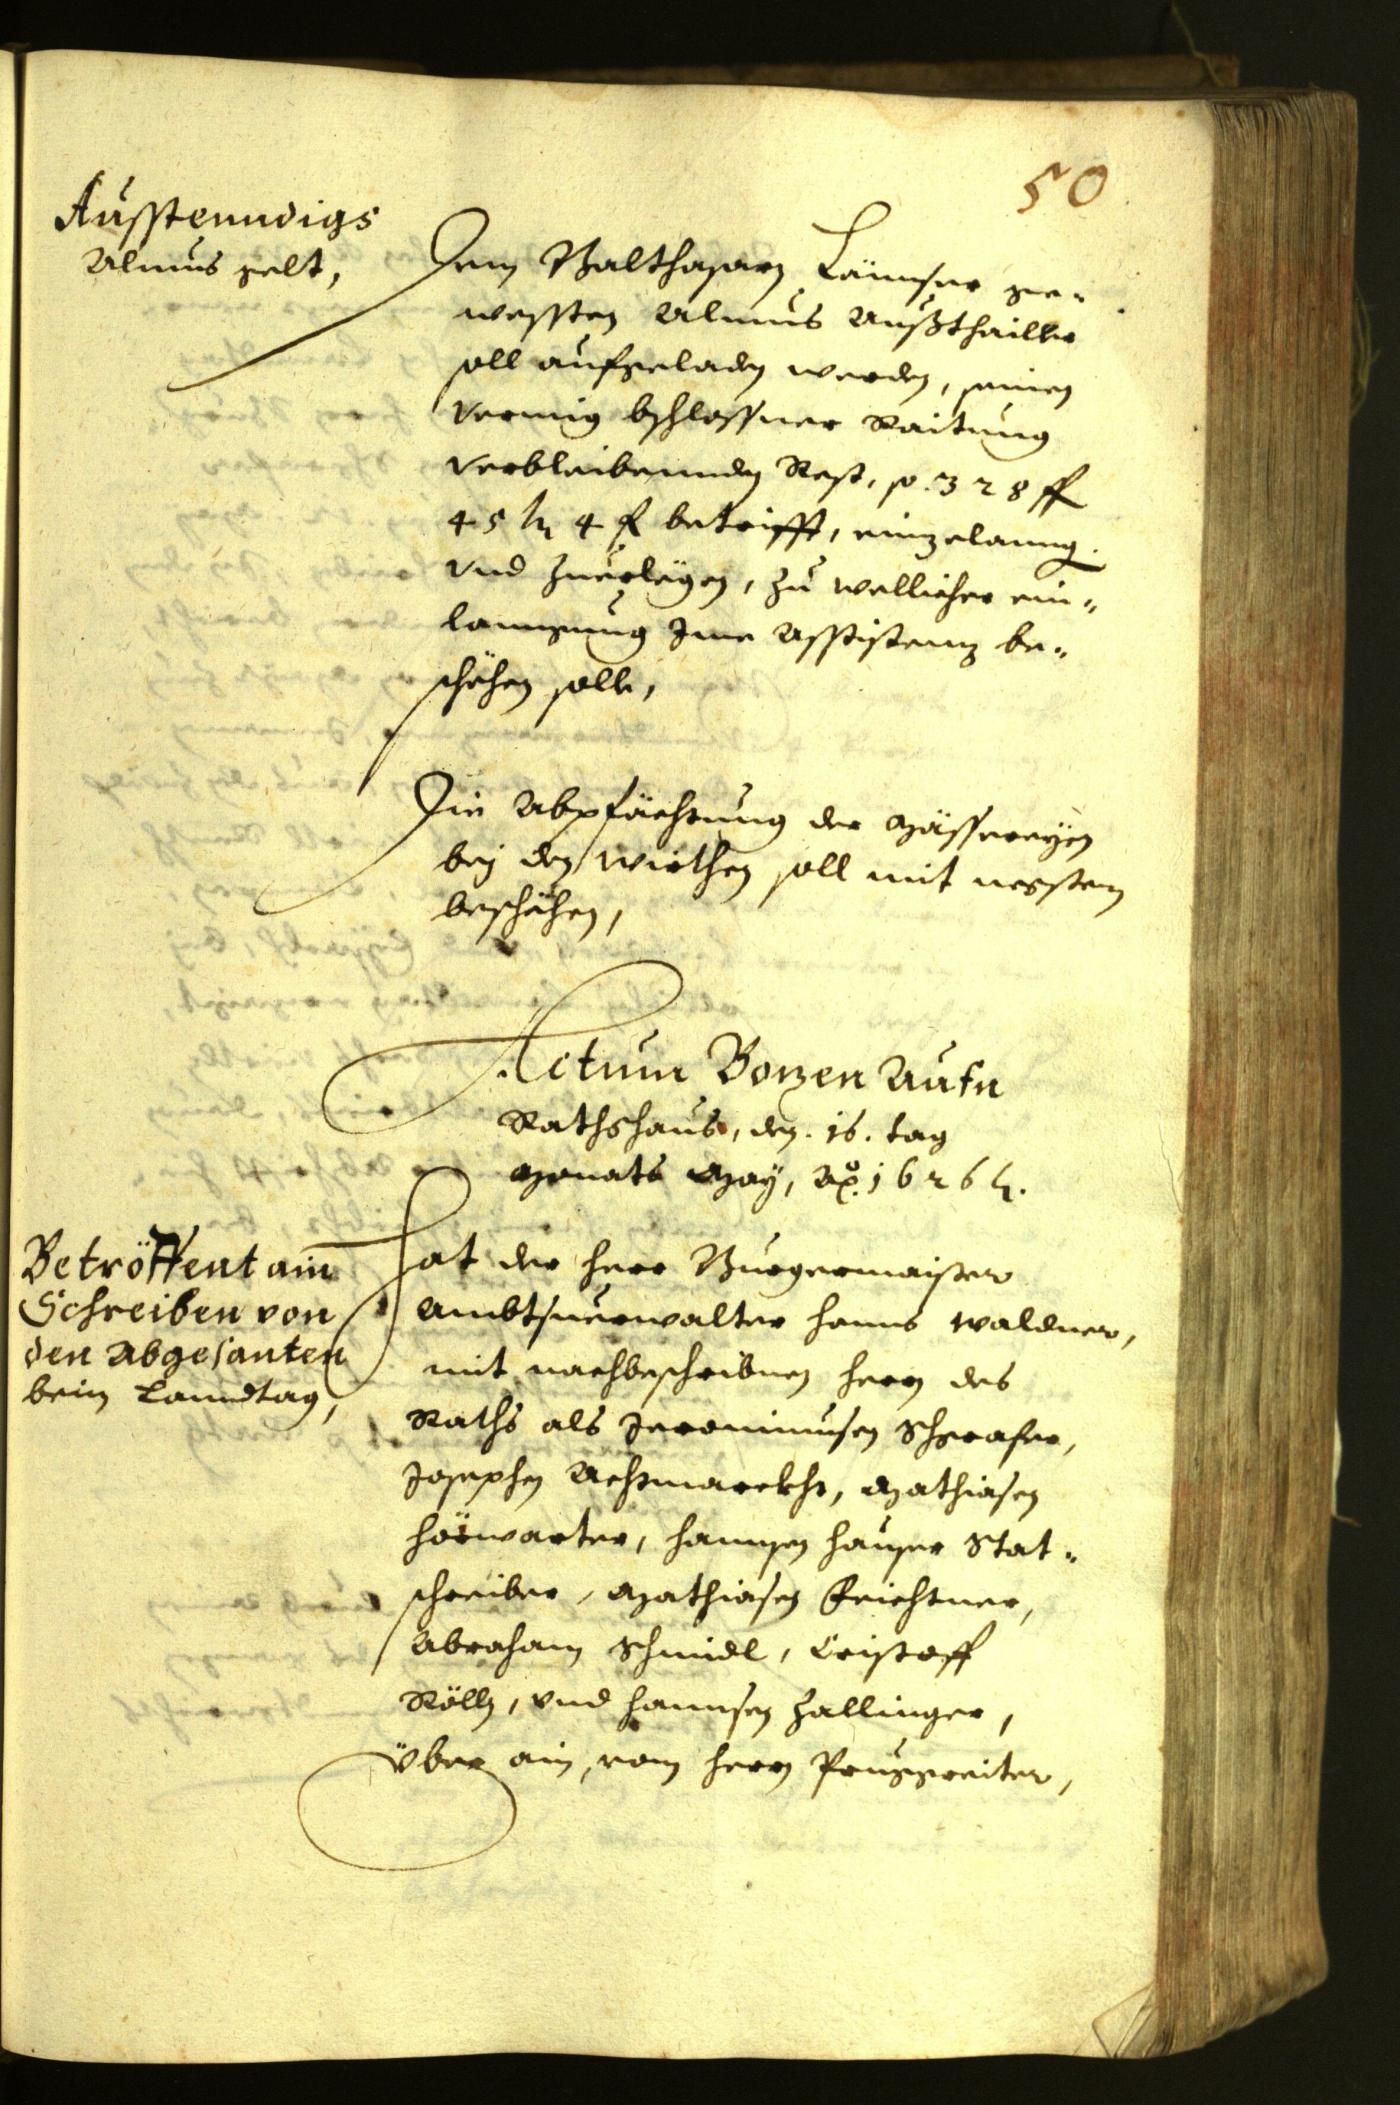 50
Ausstenndigs
Almus gelt,
Dem Balthasarn Laimer ge-
wessten Almus Außthailler
soll aufgeladen werden, seinen
vermig bschlossner Raitung
verbleibennden Rest, so 328 fl
45 kr 4 f betrifft, einzelanng
vnd Zuerlegen, zu wellicher ein-
lanngung Ime Assistennz be-
schehen solle,
Die Abpfächtung der Mässereyen
bey den Wirthen soll mit negstem
beschehen,
Actum Bozen Aufn
Rathshaus, den 16. tag
Monats May, Ao. 1626 kr.
Betröffent ain
Schreiben von
den Abgesanten
beim Lanndtag,
Hat der herr Burgermaister
Ambtsuerwalter hanns Waldner,
mit nachbeschribnen herrn des
Raths als Jeronimusen Schgrafer,
Josephen Achtmarckht, Mathiasen
hörwarter, hannsen hauser Stat-
schreiber, Mathiasen Feichtner,
Abraham Schmidl, Cristoff
Rölln, vnd hannsen Zallinger,
über ain, vom herrn Pruggreiter,